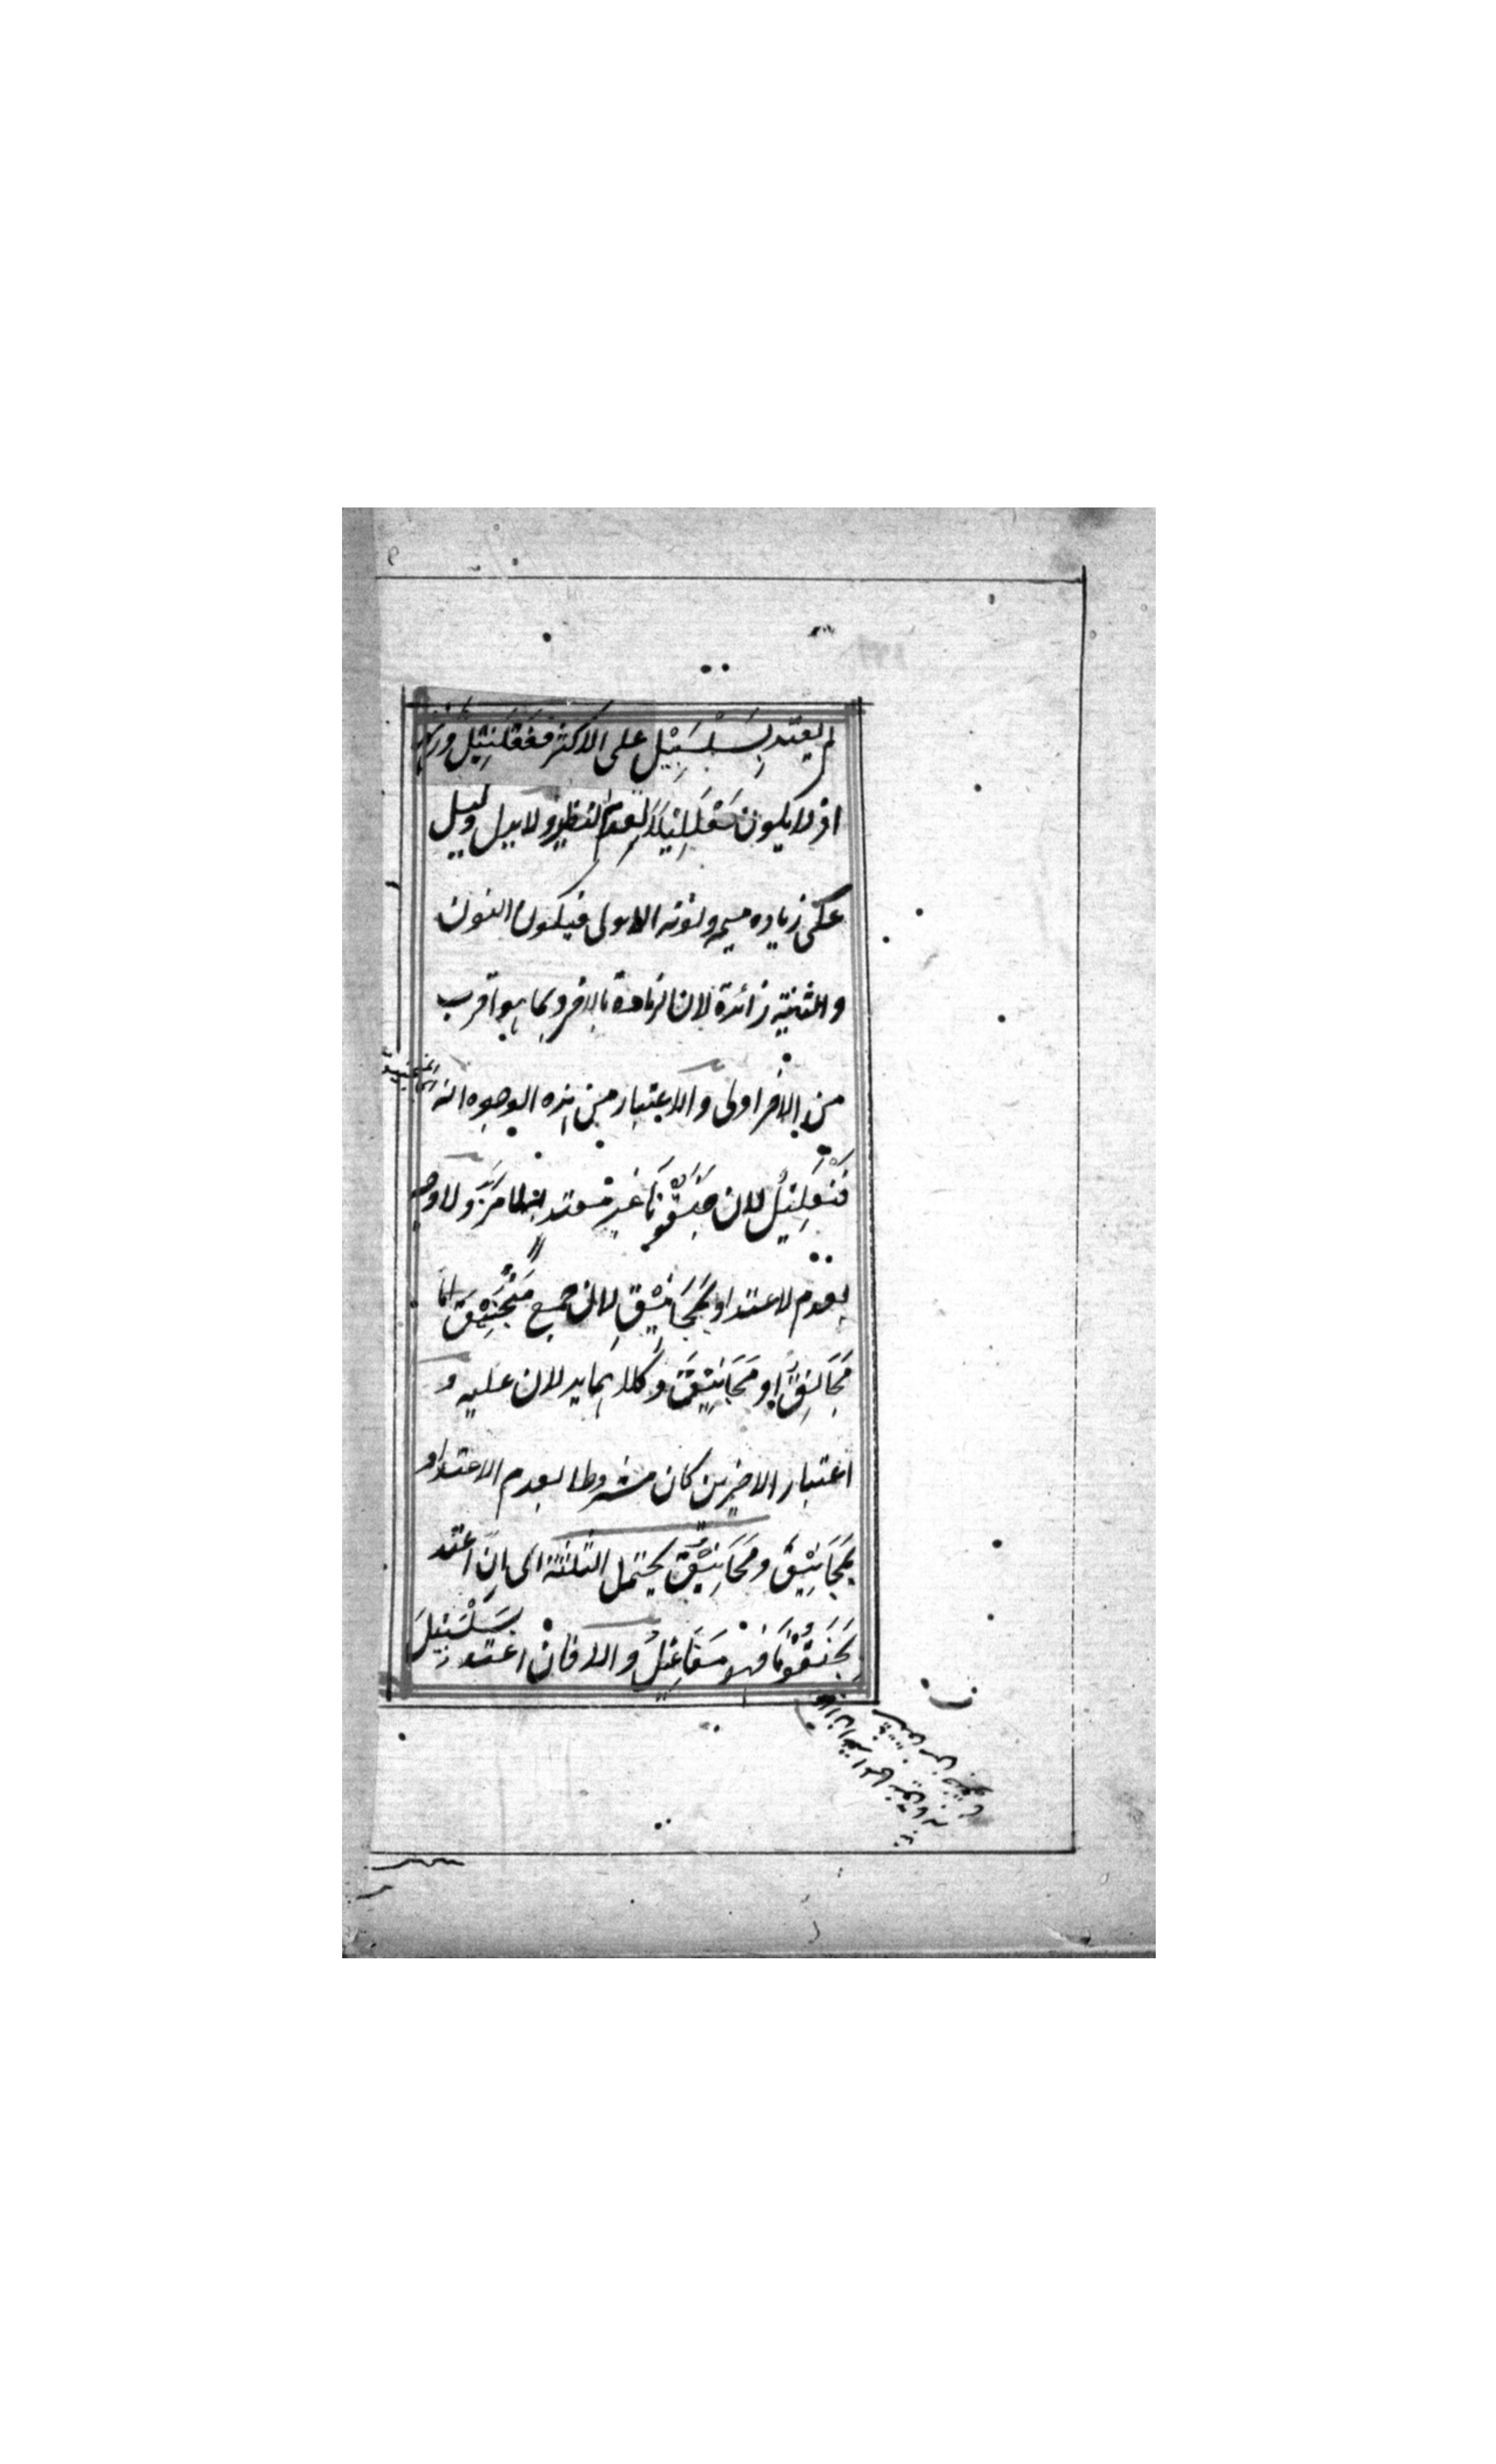 لم يعتد بِسَلْسَبِيْل على الاكثر فَفَعْلَنِيْل وزنه
اذ لا يكون فَعْلَلِيْلَا لعدم النظير ولا يدل دليل
على زيادة ميمه ونونه الاولى فيكون النون
والثانية زائدة لان الزيادة بالاخر وبما هو اقرب
من الاخر اولى والاعتبار من هذه الوجوه انه
فَنْعَلِيْلُ لان جَنَقُوْنَا غير معتد به لما مر ولا وجه
لعدم لاعتداد بِمَجَانِيْقِ لان جمع مَنْجَنِيْقَ اما
مَجَانِقُ او مَجَانِيْقَ وكلاهما يدلان عليه و
اعتبار الاخيرين كان مشروطا بعدم الاعتداد
بِمَجَانِيْقَ ومَجَانِيْقُ يحتمل الثلثة اى ان اعتد
بِجَنَقُوْنَا فهو مَفَاعِيْلُ والا فان اعتد بسَلْسَبِيْلَ